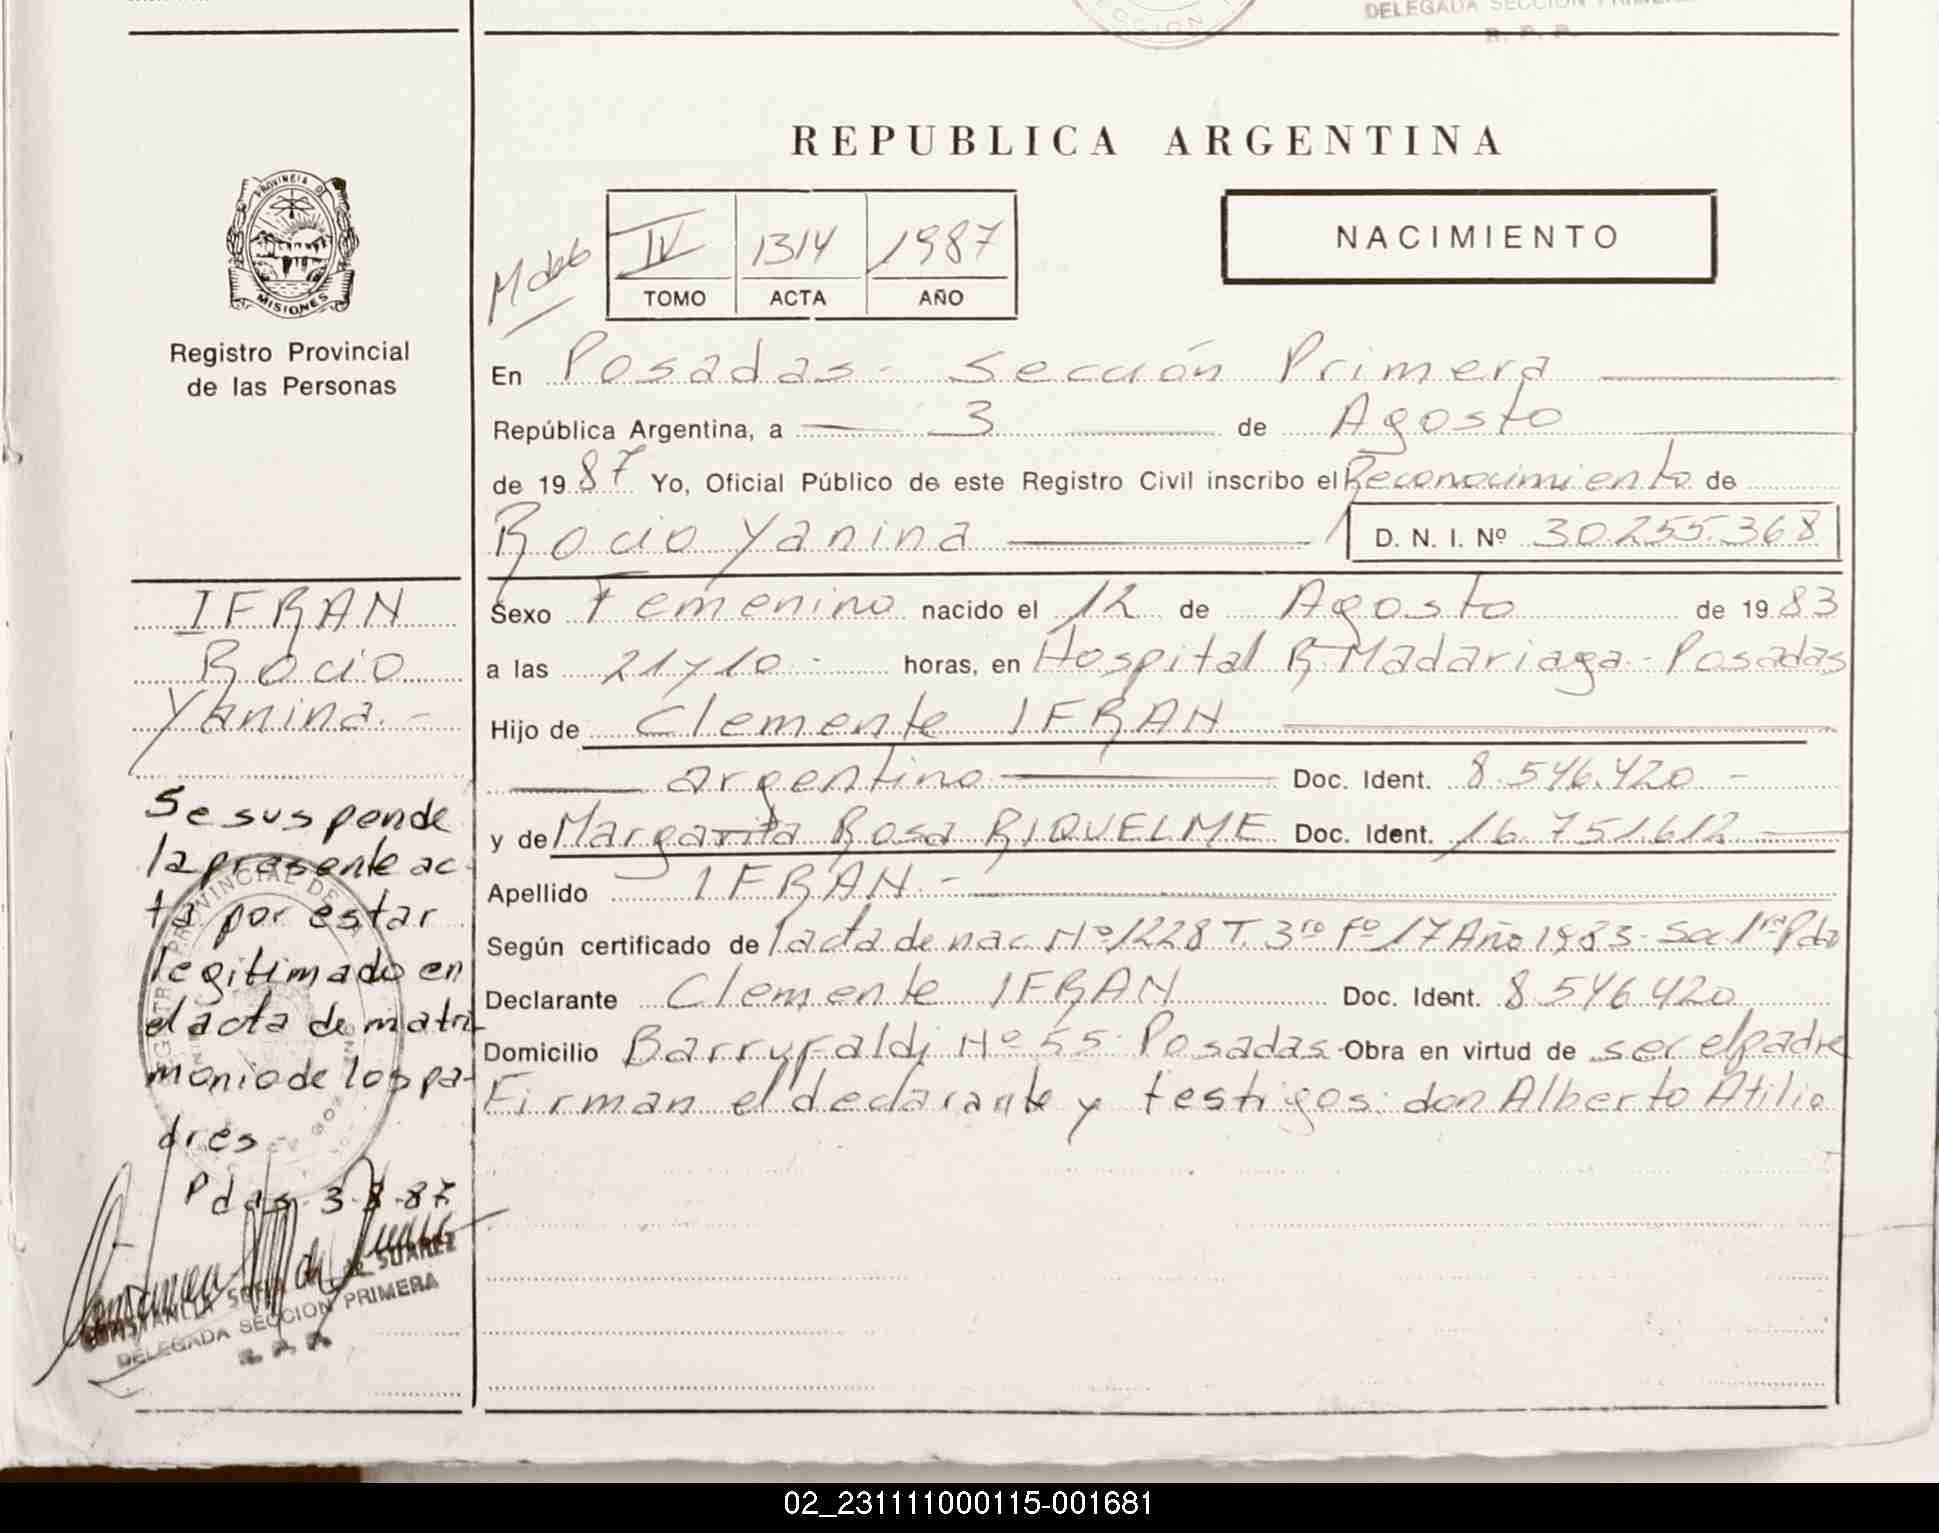 DELEGADA SECCION PRIMERA
R. P. P.
REPUBLICA ARGENTINA
NACIMIENTO
IV 1314 1987
TOMO ACTA AÑO
PROVINCIA DE
MISIONES
Registro Provincial
de las Personas
En Posadas - Sección Primera
República Argentina, a 3 de Agosto
de 1987 Yo, Oficial Público de este Registro Civil inscribo el Reconocimiento de
Rocio Yanina D. N. I. Nº 30.255.368
Sexo Femenino nacido el 12 de Agosto de 1983
a las 21 y 10 - horas, en Hospital R. Madariaga - Posadas
Hijo de Clemente IFRAN
argentino Doc. Ident. 8.546.420 -
y de Margarita Rosa RIQUELME Doc. Ident. 16.751.612 -
Apellido IFRAN -
Según certificado de acta de nac Nº 1228 T. 3ro Fº 17 Año 1983 - Sec 1ra Pdas
Declarante Clemente IFRAN Doc. Ident. 8.546.420
Domicilio Nº 55 - Posadas - Obra en virtud de ser el padre
Firman el declarante y testigos: don Alberto Atilio
IFRAN
Rocio
Yanina. -
Se suspende
la presente ac-
ta por estar
legitimado en
el acta de matri-
monio de los pa-
dres
Pdas. 3-8-87
SUAREZ
DELEGADA SECCION PRIMERA
R. P. P.
02_231111000115-001681